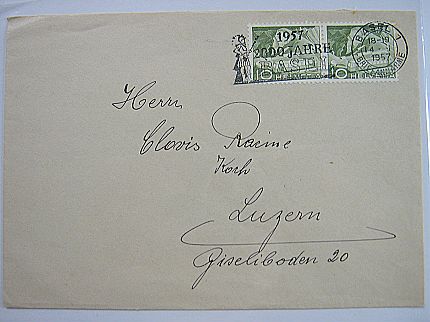 1957
2000 JAHRE
BASEL
BASEL 1
18-19
1957
10 HELVETIA 10 HELVETIA
Herrn
Clovis Racine
Koch
Luzern
Giseliboden 20